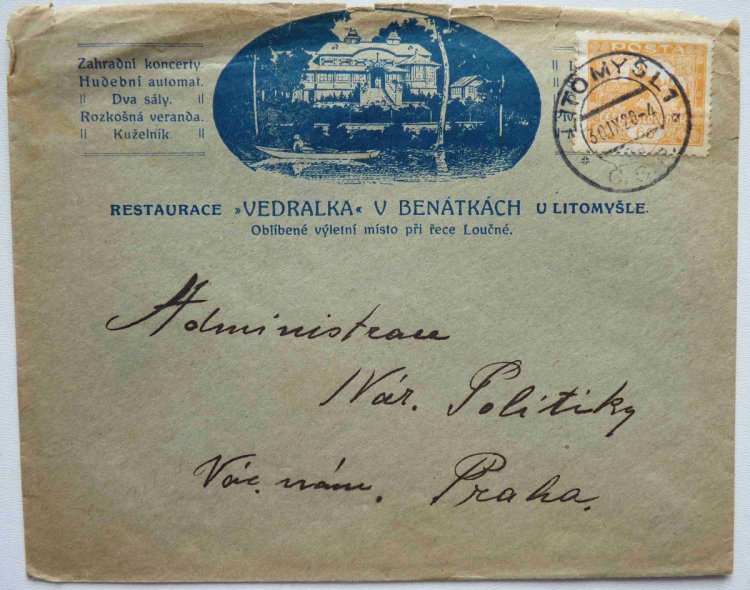 Zahradní koncerty.
Hudební automat.
Dva sály.
Rozkošná veranda.
Kuželník.
POŠTA
LITOMYŠL 1
30.IV.20-4
Č.S.P.
RESTAURACE »VEDRALKA« V BENÁTKÁCH U LITOMYŠLE.
Oblíbené výletní místo při řece Loučné.
Administrace
Nár. Politiky
Vác. nám. Praha.